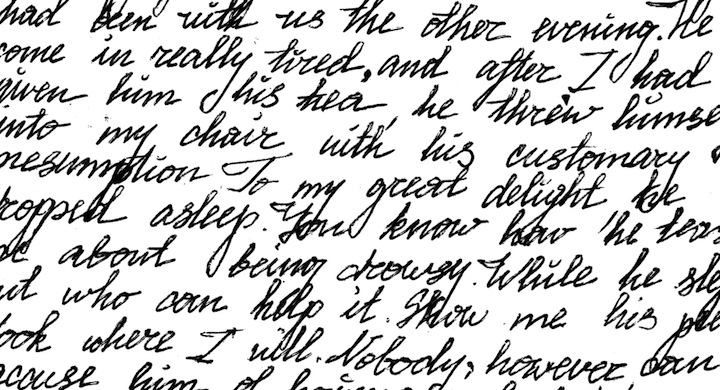 had been with us the other evening. He
come in really tired, and after I had
given him his tea, he threw himse
into my chair with his customary
presumption To my great delight he
ropped asleep. You know how he teas
about being drowsy. While he sle
ut who can help it. Show me his
ook where I will. Nobody, however can
ccuse him of